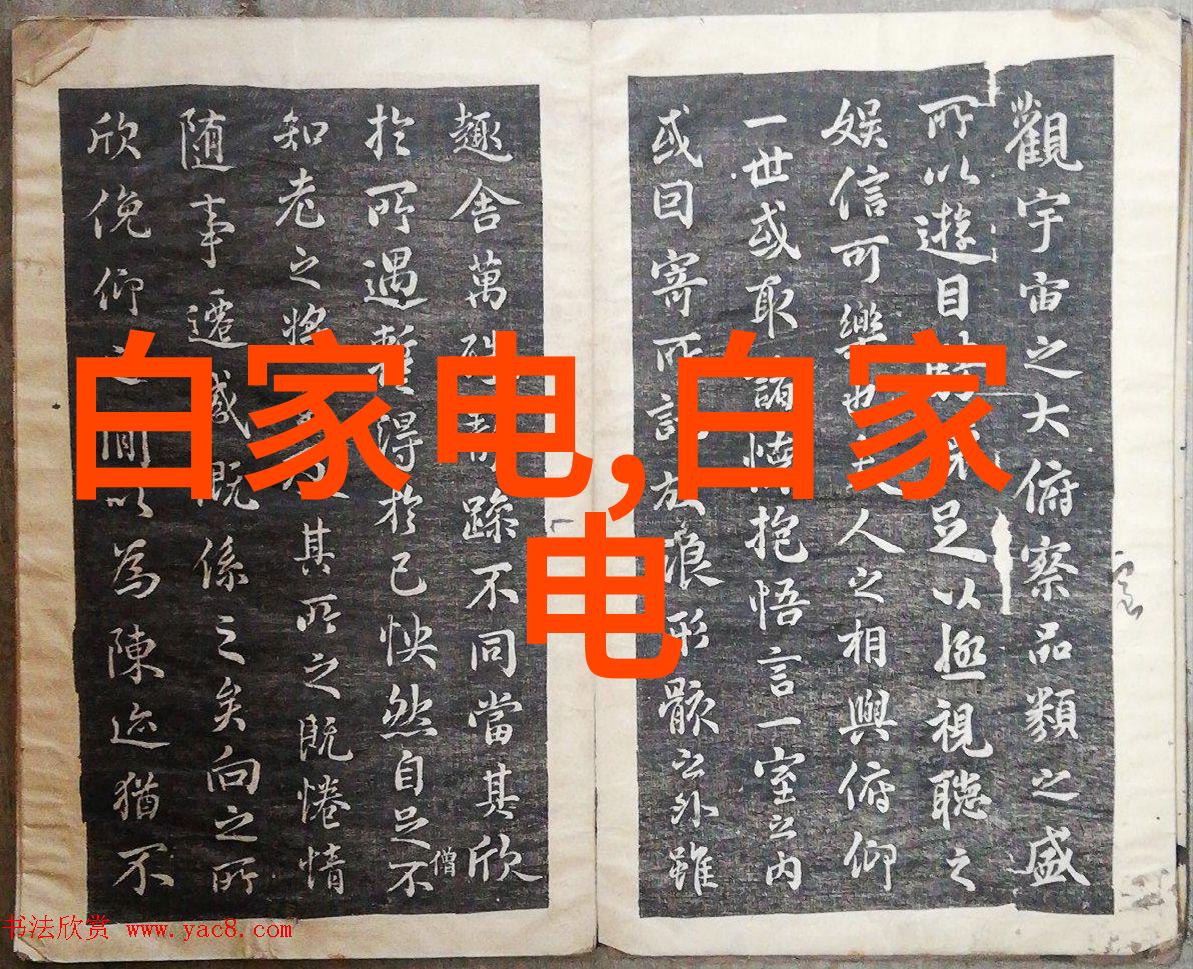 觀宇宙之大俯察品類之盛
所以遊目騁懷足以極視聽之
娱信可樂也夫人之相與俯仰
一世或取諸懷抱悟言一室之内
或因寄所託放浪形骸之外雖
趣舍萬殊静躁不同當其欣
於所遇暫得於己怏然自足不
僧
知老之将至及其所之既惓情
随事遷感慨係之矣向之所
欣俛仰之間以為陳迹猶不
白家电,白家
电
书法欣赏 www.yac8.com